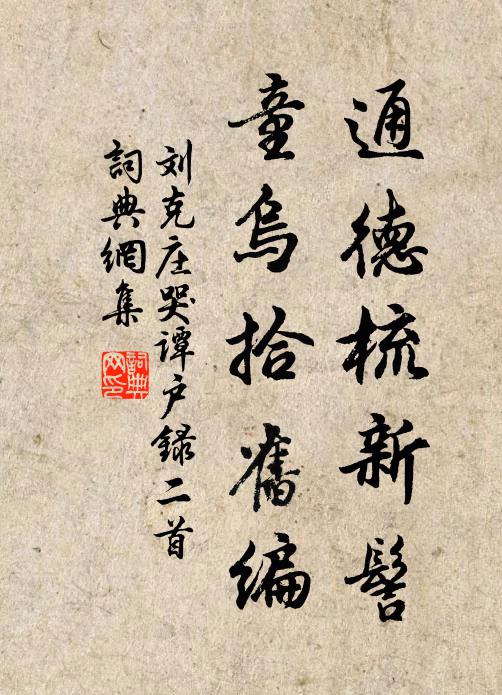 通德梳新髻
童乌拾舊编
刘克庄哭谭户録二首
詞典網集
詞典網印